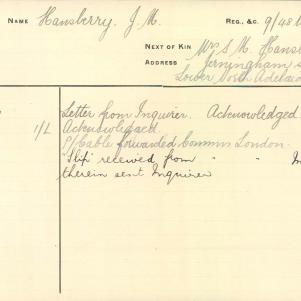 NAME Hansberry. J. M. REG. &C. 9/48
NEXT OF KIN Mrs S. M. Hans
ADDRESS Jerningham S
Lower North Adelaid
Letter from Inquirer. Acknowledged
1/L Acknowledged.
P/Cable forwarded Commrs London.
"Slip" received from " " In
therein sent Inquirer